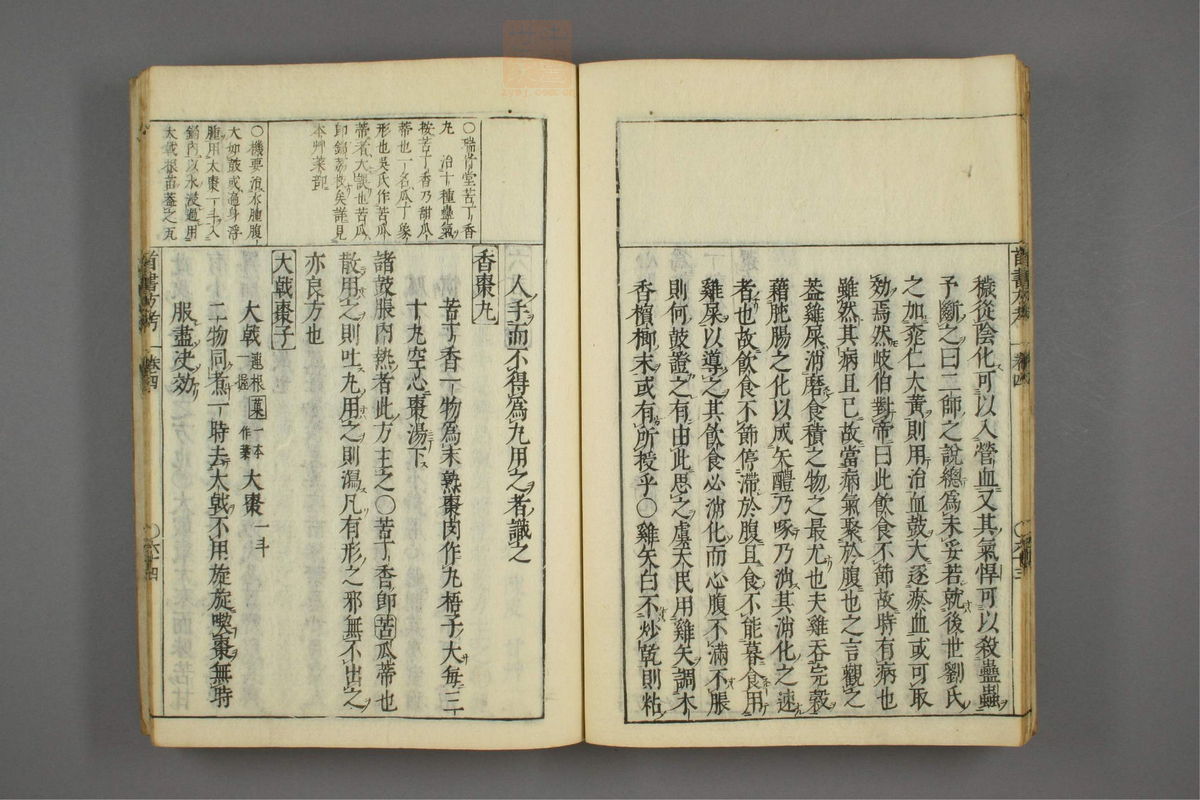 穢從陰化可以入營血又其氣悍可以殺蠱蟲
予斷之曰二師之說總爲未妥若就後世劉氏
之加桃仁大黃則用治血鼓大逐瘀血或可取
効焉然岐伯對帝曰此飲食不節故時有病也
雖然其病且已故當病氣聚於腹也之言觀之
葢雞屎消磨食積之物之最尤也夫雞吞完穀
藉肫腸之化以成矢醴乃啄乃消其消化之速
者也故飲食不節停滯於腹且食不能暮食用
雞屎以導之其飲食必消化而心腹不滿不脹
則何鼓證之有由此思之虞天民用雞矢調木
香檳榔末或有所授乎○雞矢白不炒乾則粘
首書方考 卷四 ○六十三
○瑞竹堂苦丁香
丸 治十種蠱氣
按苦丁香乃甜瓜
蒂也一名瓜丁象
形也吳氏作苦瓜
蒂者大誤也苦瓜
即錦荔枝矣詳見
本艸菜部
○機要治水腫腹
大如鼓或遍身浮
腫用大棗一斗入
鍋內以水浸過用
大戟根苗葢之瓦
人手而不得爲丸用之者識之
香棗丸
苦丁香一物爲末熟棗肉作丸梧子大每三
十丸空心棗湯下
諸鼓脹內熱者此方主之○苦丁香即苦瓜蒂也
散用之則吐丸用之則瀉凡有形之邪無不出之
亦良方也
大戟棗子
大戟 連根一握 葉 一本作蕈 大棗 一斗
二物同煮一時去大戟不用旋旋喫棗無時
服盡决効
首書方考 卷四 ○六十四